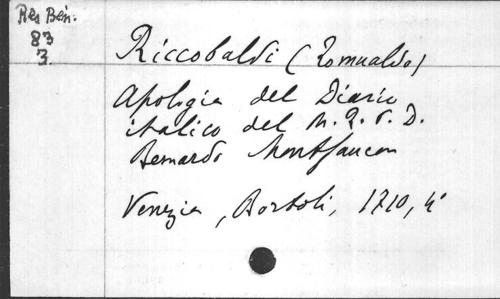 Res Bén.
83
3
Riccobaldi (Romualdo)
Apologia del Diario
italico del M. R. P. D.
Bernardo Montfaucon
Venezia, Bortoli, 1710, 4°